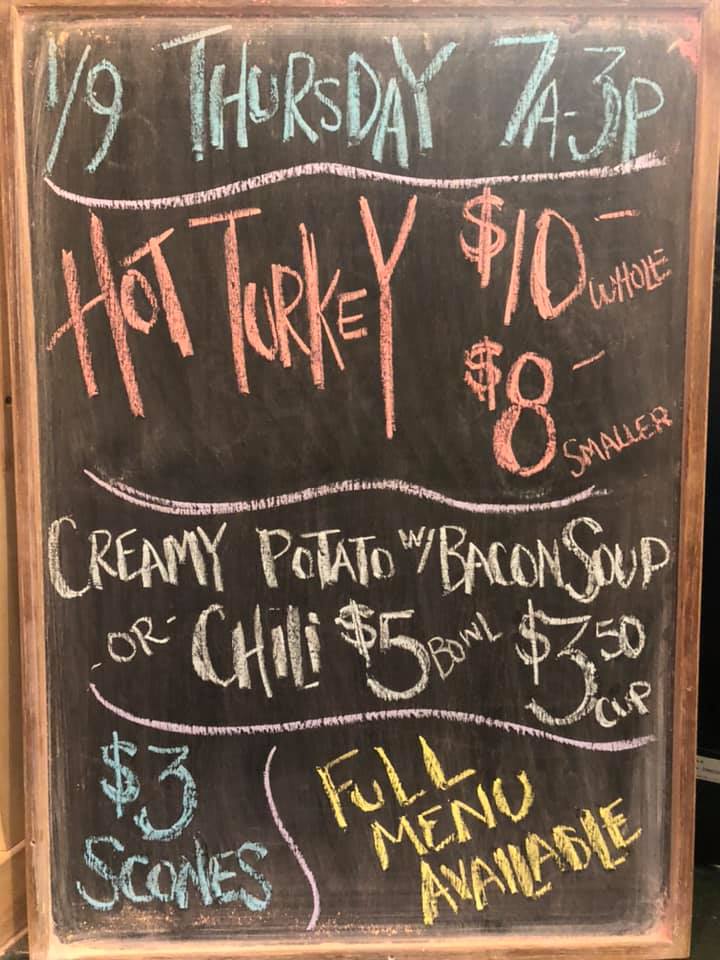 1/9 THURSDAY 7A-3P
HOT TURKEY $10- WHOLE
$8- SMALLER
CREAMY POTATO W/ BACON SOUP
-OR- CHILI $5 BOWL $3.50 CUP
$3
SCONES
FULL
MENU
AVAILABLE